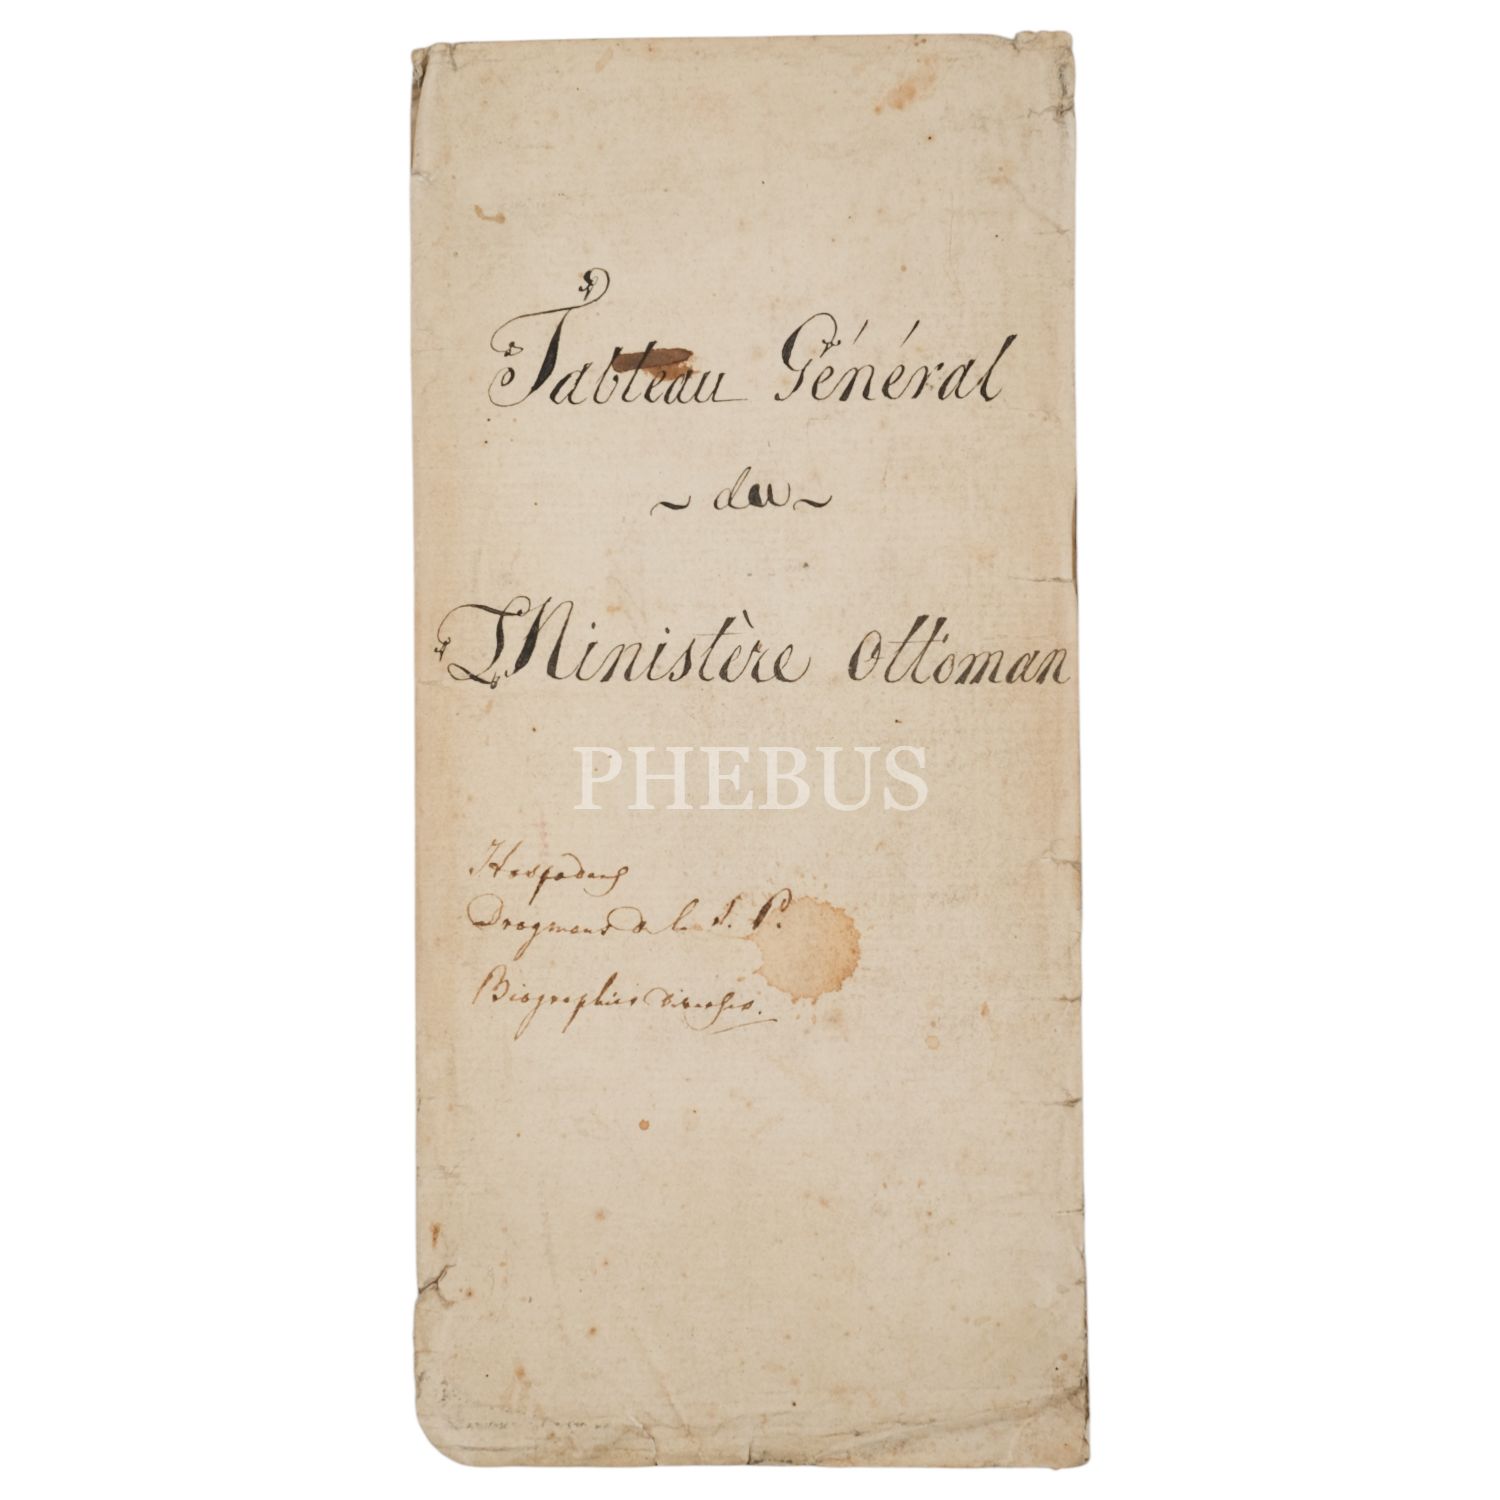 Tableau Général
~ du ~
Ministère Ottoman
PHEBUS
Hospodars
Drogmans de la S. P.
Biographies diverses.